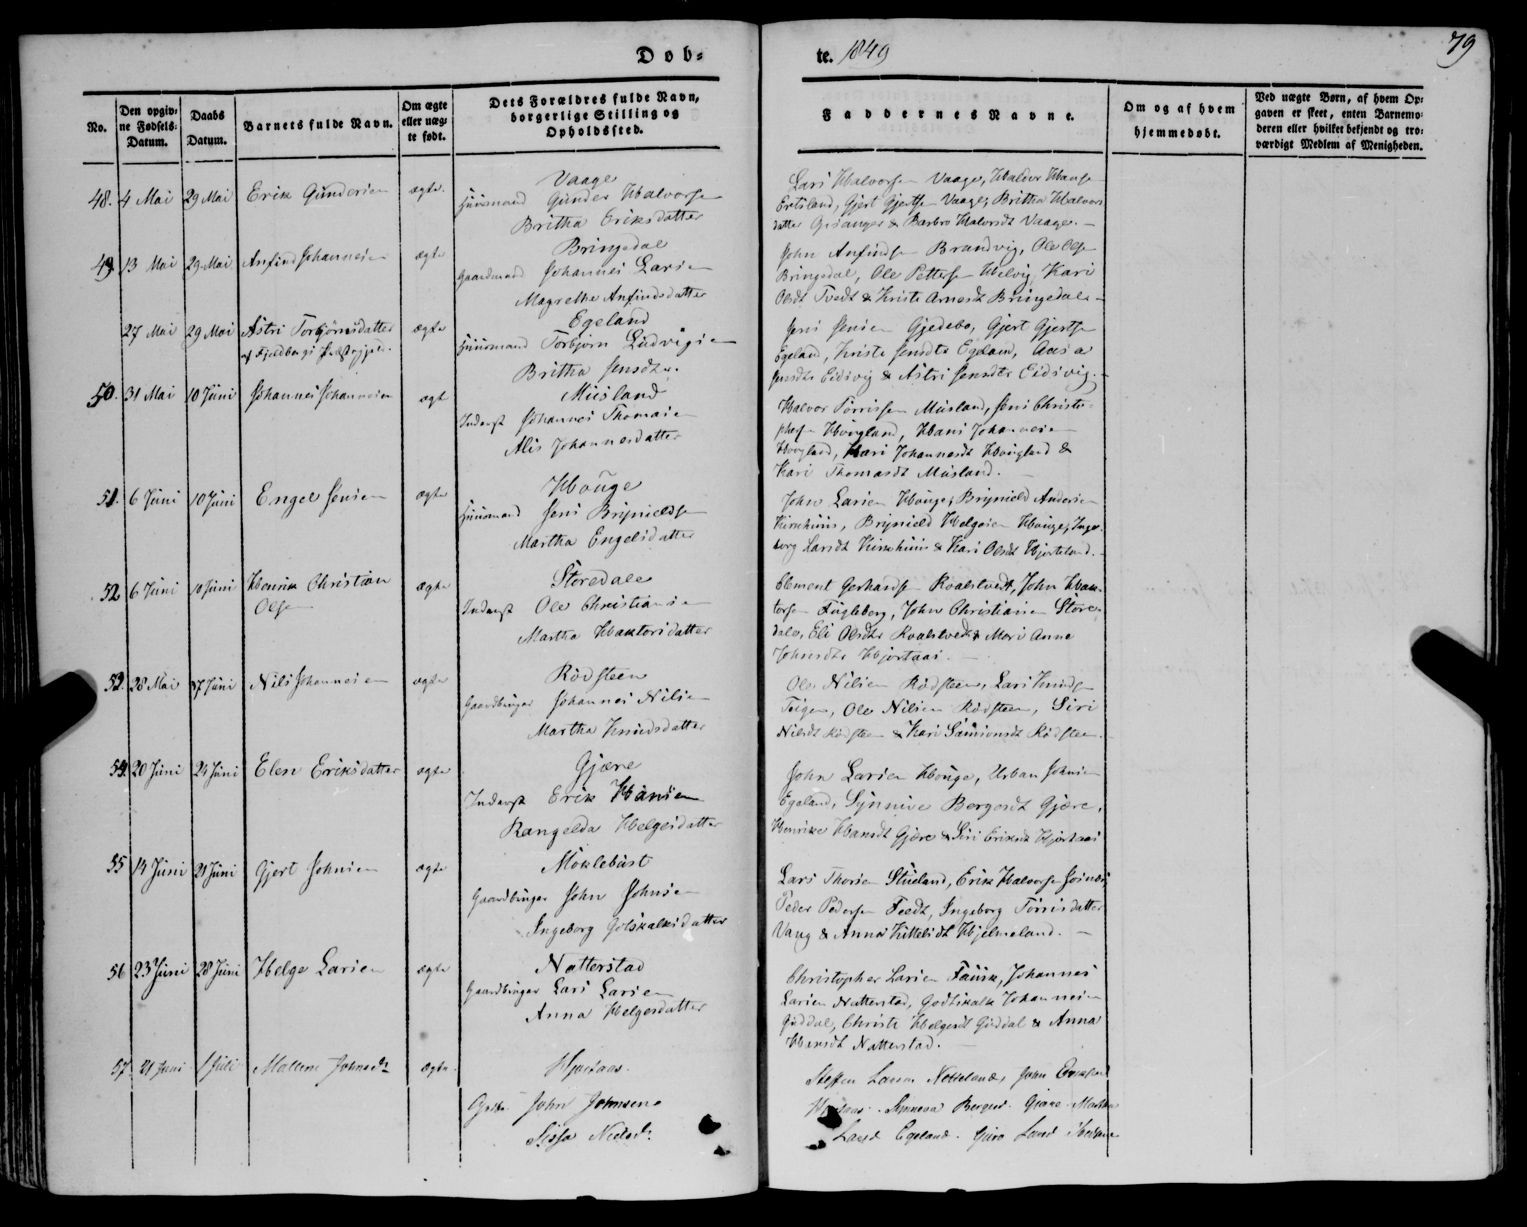 Dob=
te. 1849
79
No.
Den opgiv=
ne Fødsels=
Datum.
Daabs
Datum.
Barnets fulde Navn.
Om ægte
eller uæg=
te født.
Dets Forældres fulde Navn,
borgerlige Stilling og
Opholdssted.
Faddernes Navne.
Om og af hvem
hjemmedøbt.
Ved uægte Børn, af hvem Op=
gaven er skeet, enten Barnemo=
deren eller hvilket bekjendt og tro=
værdigt Medlem af Menigheden.
48. 4 Mai 29 Mai Erik Gundersen ægte
Vaage
Huusmand Gunder Halvorsen
Britha Eriksdatter
Lars Halvorsen Vaage, Haldor Hansen
Ertsland, Gjert Gjertsen Vaage, Britha Halvors
datter & Barbro Halvorsdt Vaage. -
49 13 Mai 29 Mai Anfind Johannesen ægte
Bringedal
Gaardmand Johannes Larsen
Magrethe Anfindsdatter
John Anfindsen Brandvig, Ole Olsen
Bringedal, Ole Pettersen Helvig, Kari
Olsdt Tvedt & Kristi Arnesdt Bringedal. -
27 Mai 29 Mai Astri Torbjørnsdatter ægte
af Fjeldbergs Præstegjeld.
Egeland
Huusmand Torbjørn Ludvigsen
Britha Jensdtr.
Jens Jensen Gjedebo, Gjert Gjertsen
Egeland, Kristi Jensdtr Egeland, Aasa
Jensdtr Eidsvig & Astri Jensdtr Eidsvig. -
50. 31 Mai 10 Juni Johannes Johannesen ægt
Musland
Inderst Johannes Thomasen
Alis Johannesdatter
Halvor Tørrisen Musland, Jens Christo=
phersen Hougland, Hans Johannesen
Hougland, Kari Johannesdt Hougland &
Kari Thomasdt Musland. -
51. 6 Juni 10 Juni Engel Jensen ægte
Houge
Huusmand Jens Brynieldsen
Martha Engelsdatter
John Larsen Houge, Brynield Andersen
Kirsehuus, Brynield Helgesen Houge, Inge=
borg Larsdt Kirsehuus & Kari Olsdt Hjorteland. -
52 6 Juni 10 Juni Henrik Christian ægte
Olsen
Storedale
Inderst Ole Christiansen
Martha Haktorsdatter
Clement Gerhardsen Roalstvedt, John Hak=
torsen Fugleberg, John Christiansen Store=
dale, Eli Olsdtr Roalstvedt & Mari Anne
Johnsdtr Hjortaas. -
53. 28 Mai 17 Juni Nils Johannesen ægte
Rødsteen
Gaardbruger Johannes Nilsen
Martha Knudsdatter
Ole Nilsen Rødsteen, Lars Knudsen
Teigen, Ole Nilsen Rødsteen, Siri
Nilsdt Rødsteen & Kari Samsonsdt Rødsteen.
54. 20 Juni 24 Juni Elen Eriksdatter ægte
Gjære
Inderst Erik Hansen
Rangelda Helgesdatter
John Larsen Houge, Urban Johnsen
Egeland, Synnive Bergesdt Gjære,
Henrike Hansdt Gjære & Siri Eriksdt Hjortaas
55 14 Juni 21 Juni Gjert Johnsen ægte
Moklebust
Gaardbruger John Johnsen
Ingeborg Gotskalksdatter
Lars Thorsen Stueland, Erik Halvorsen
Peder Pedersen Tvedt, Ingeborg Tørrisdatter
Vaag & Anna Kittelsdt Hjelmeland. -
56 23 Juni 28 Juni Helge Larsen ægte
Natterstad
Gaardbruger Lars Larsen
Anna Helgesdatter
Christopher Larsen Fausk, Johannes
Larsen Natterstad, Godtskalk Johannesen
Guddal, Christi Helgesdt Guddal & Anna
Hansdt Natterstad. -
57. 21 Juni 1 Juli Malene Johnsdr ægte
Hjortaas.
Gbr. John Johnsen
Sissa Nielsdr.
Steffen Larsen Nesseland, John Eriksen
Hjortaas. Synneva Bergesd. Gjære. Martha
Larsd Egeland. Guro Larsd